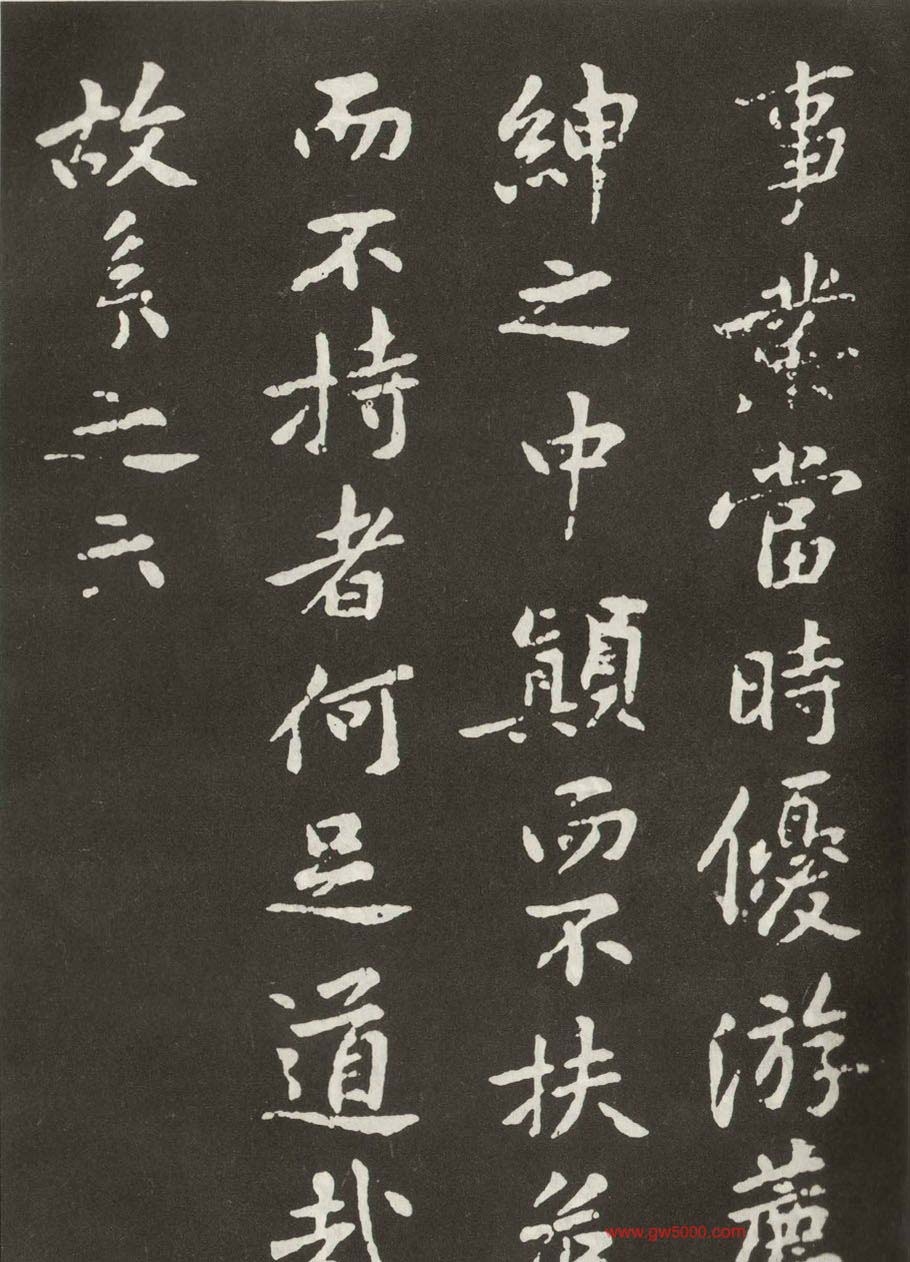 事業當時優游薦
紳之中顛而不扶危
而不持者何足道哉
故系之六
www.gw5000.com